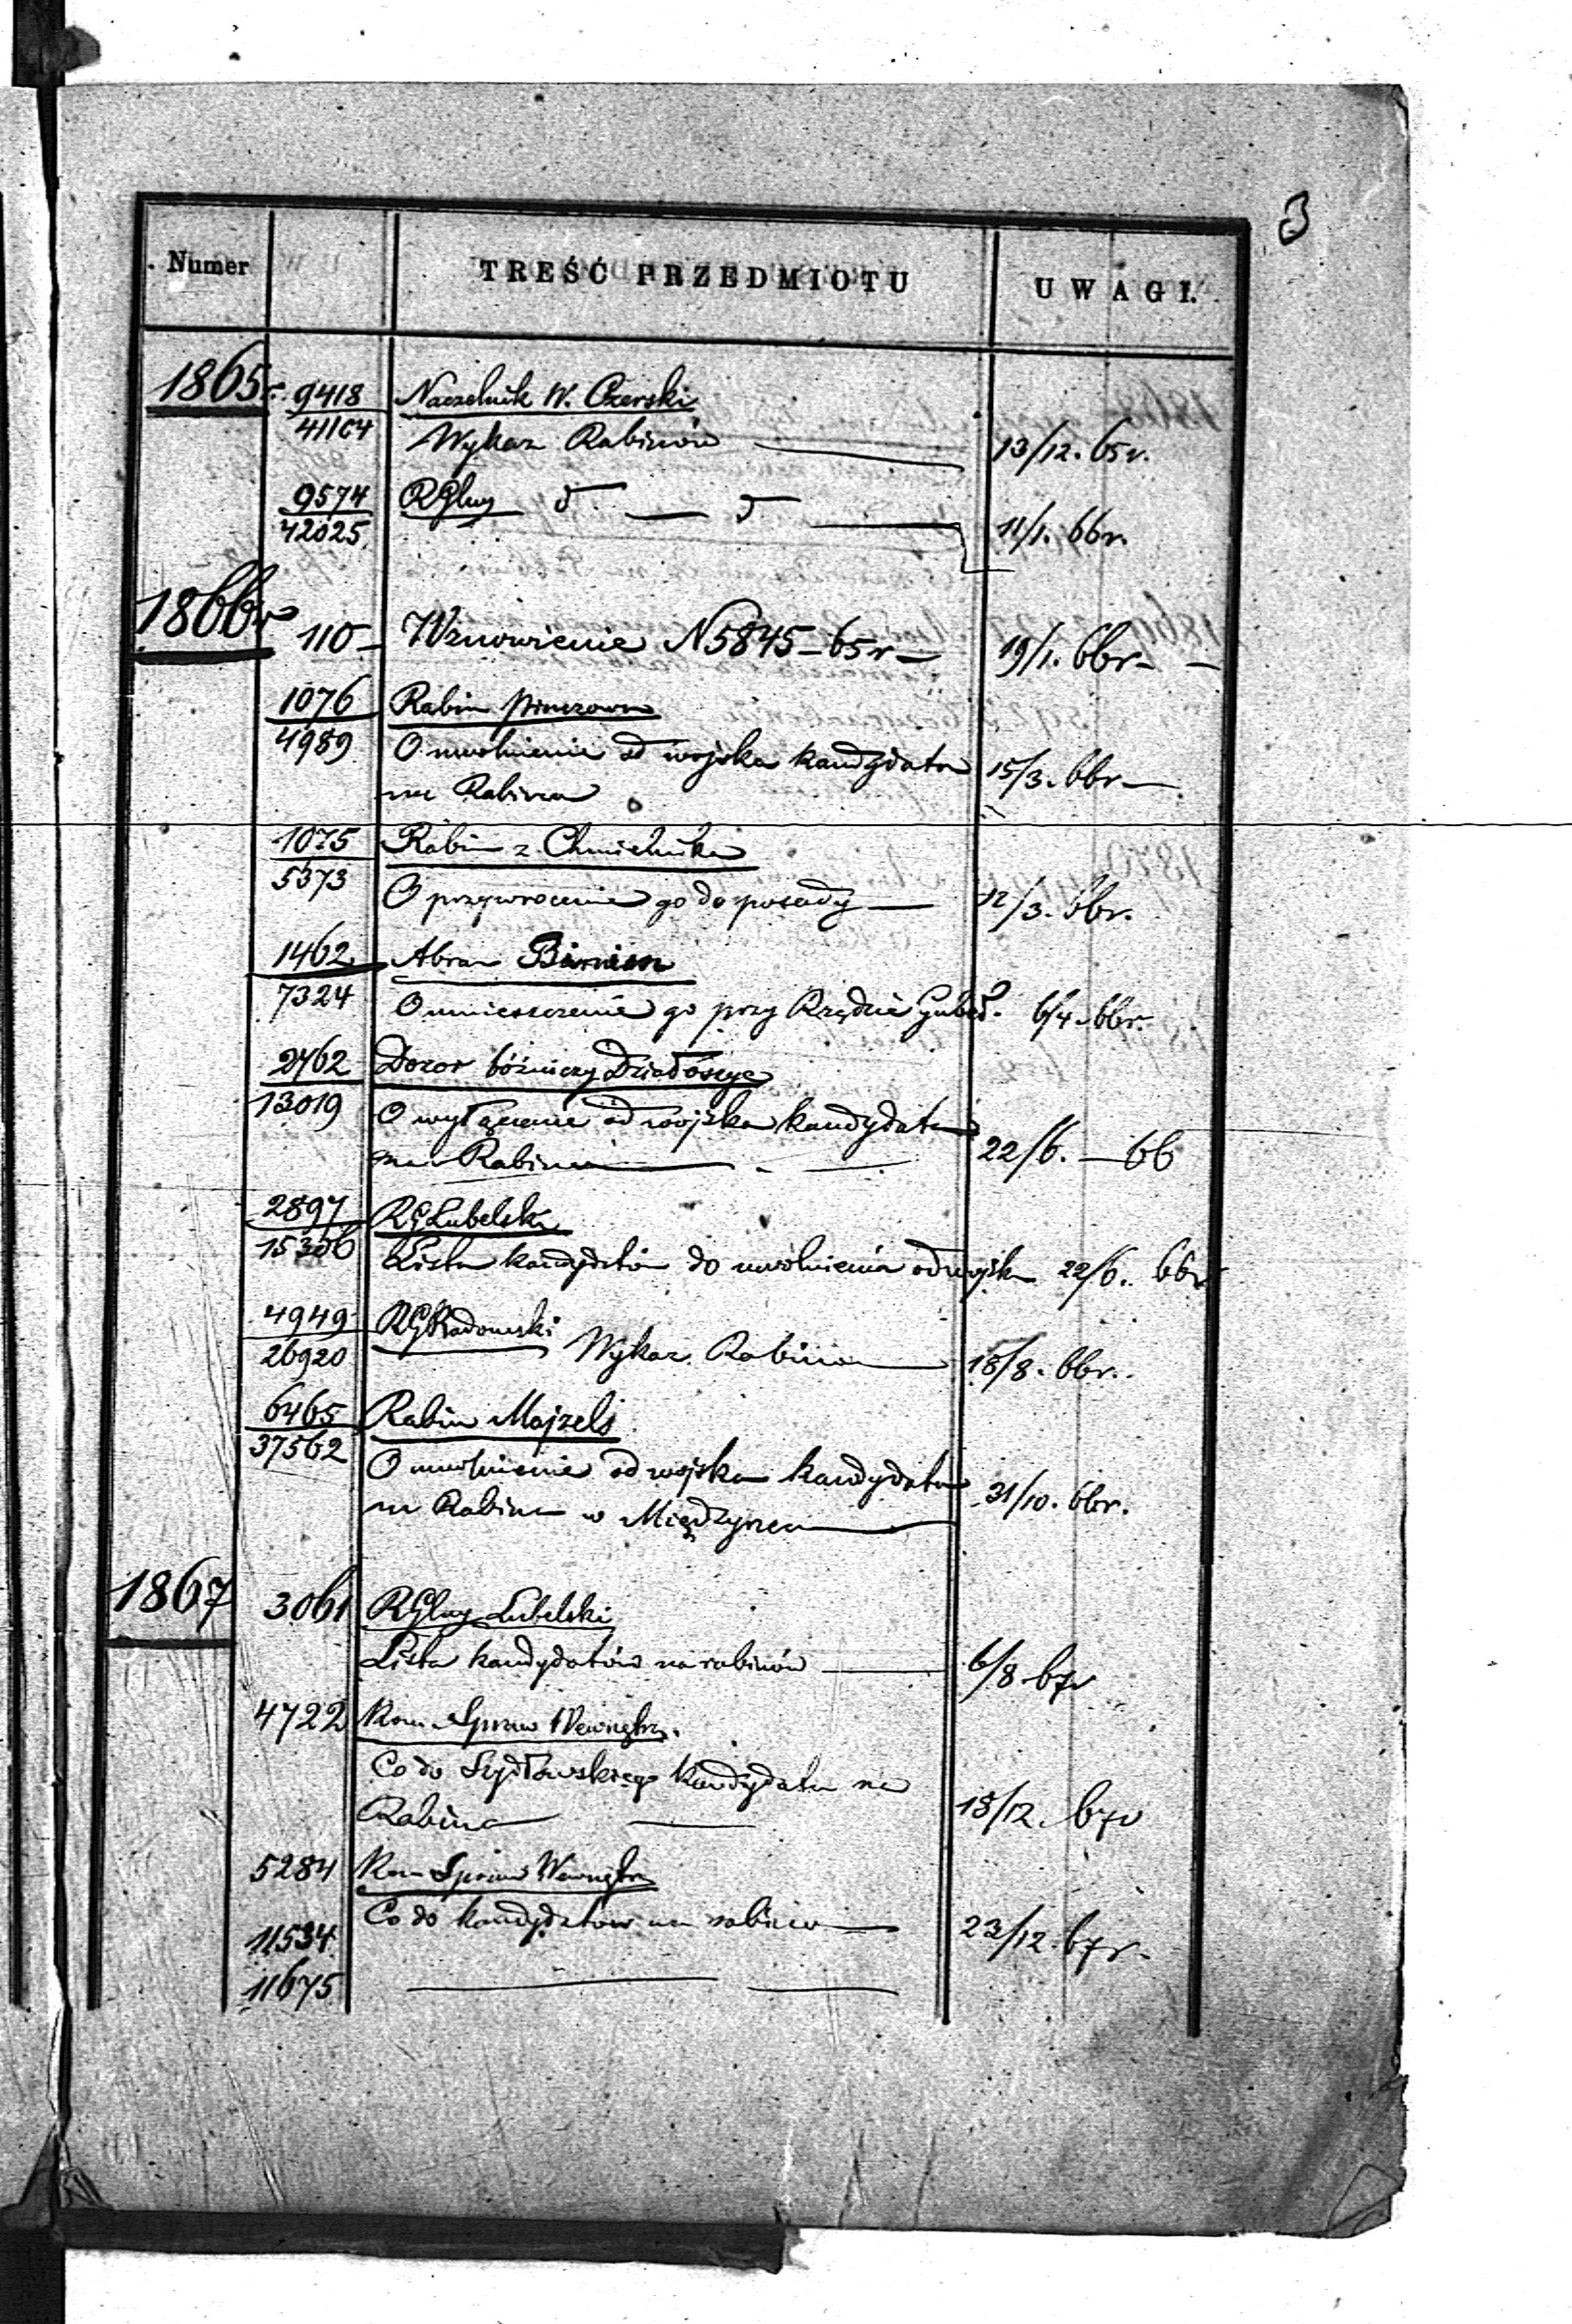 3
Numer TREŚĆ PRZEDMIOTU UWAGI.
1865r. 9418 Naczelnik W. Czerski
41164 Wykaz Rabinów 13/12. 65r.
9574 RGlny
42025 11/1. 66r.
1866r 110 Wznowienie N 5845-65r 19/1. 66r
1076 Rabin Pinczowa
4989 O uwolnienie od wojska kandydata 15/3. 66r
na Rabina
1075 Rabin z Chmielnika
5373 O przywrocenie go do posady 12/3. 66r.
1462 Abram
7324 O umieszczenie go przy Rządzie Gube. 6/4. 66r.
2462 Dozor bóżniczy Działoszyce
13019 O wyłączenie od wojska kandydata
na Rabina 22/6. 66
2897 RGLubelski
15306 Lista kandydatów do uwolnienia od wojska 22/6. 66r
4949 RGRadomski
26920 Wykaz Rabinów 18/8. 66r.
6465 Rabin Majzels
37562 O uwolnienie od wojska kandydata
na Rabina w Międzyrzecu 31/10. 66r.
1867 3061 RGlny Lubelski
Lista kandydatów na rabinów 6/8 67r
4722 Kom Spraw Wewnętrz.
Co do Szydłowskiego kandydata na
Rabina 18/12. 67r
5284 Kom Spraw Wewnętrz
Co do kandydatów na rabinów 23/12. 67r.
11534
11675